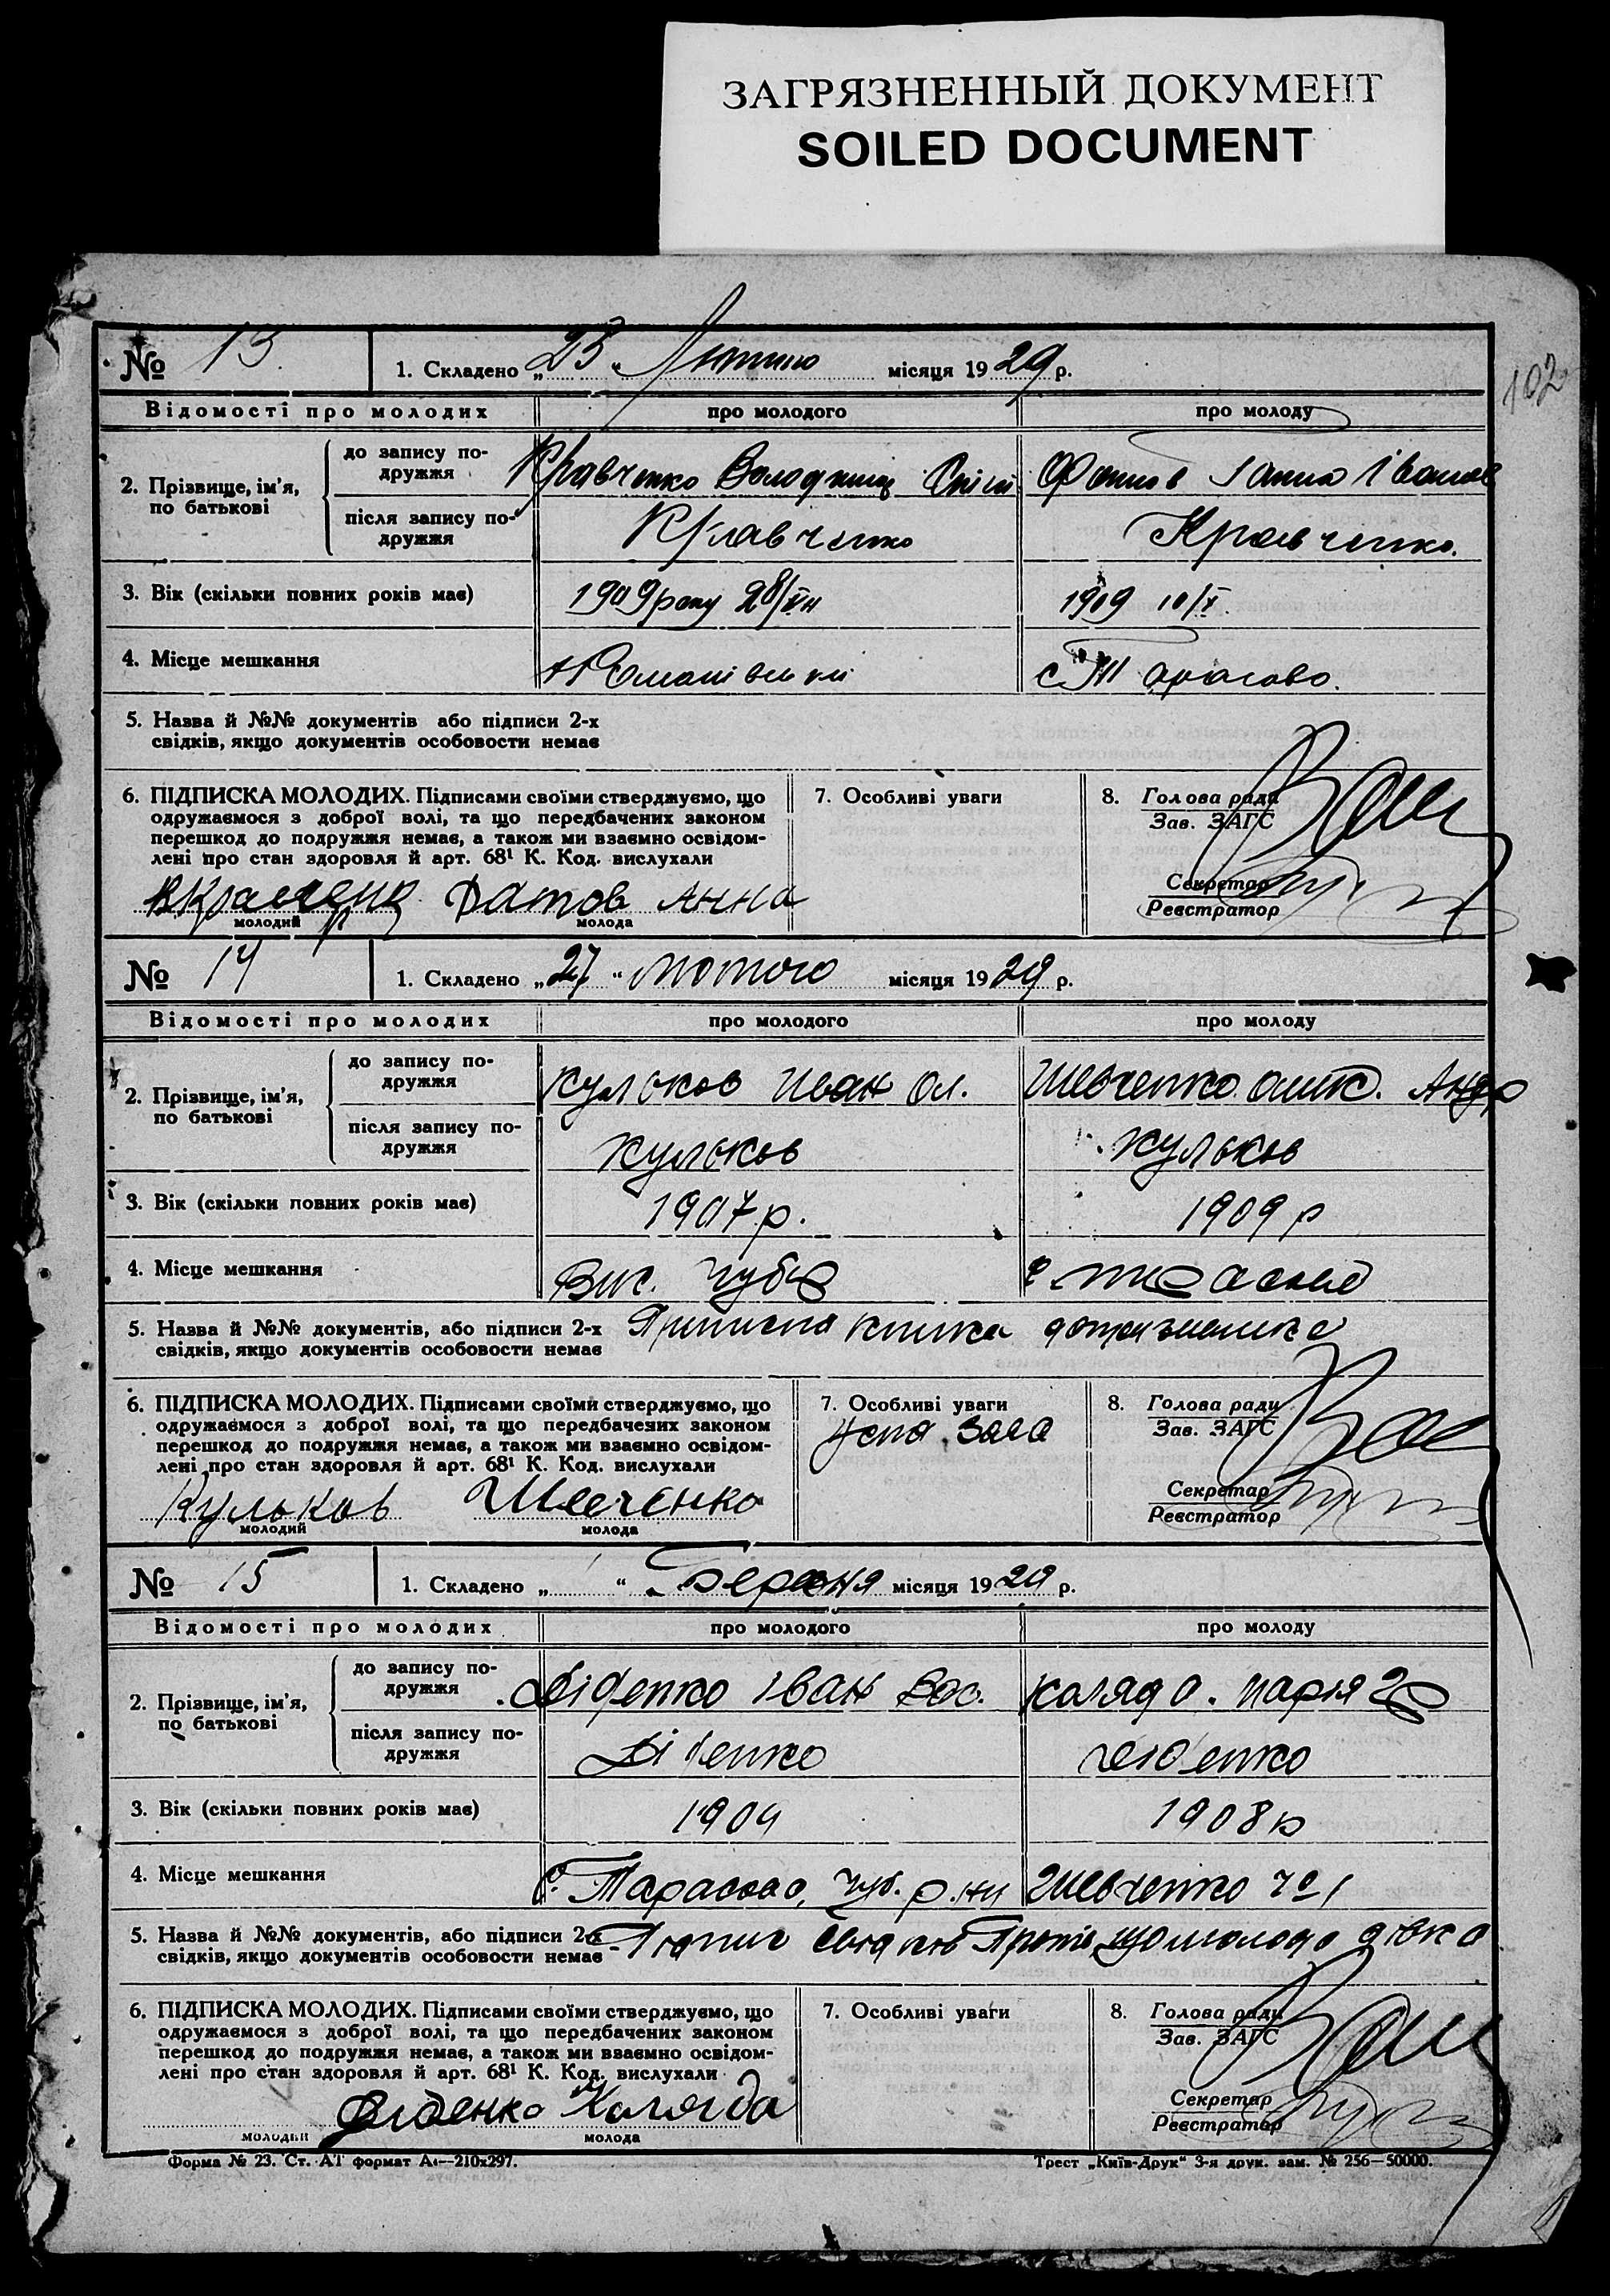 ЗАГРЯЗНЕННЫЙ ДОКУМЕНТ
SOILED DOCUMENT
102
№ 13. 1. Складено „23“ Лютого місяця 1929 р.
Відомості про молодих про молодого про молоду
2. Прізвище, ім'я, по батькові
до запису подружжя Кравченко Володимир Ганна Іванов
після запису подружжя Кравченко Кравченко.
3. Вік (скільки повних років має) 1909 року 28/VII 1909 10/X.
4. Місце мешкання с. Тарасово.
5. Назва й №№ документів або підписи 2-х
свідків, якщо документів особовости немає
6. ПІДПИСКА МОЛОДИХ. Підписами своїми стверджуємо, що
одружаємося з доброї волі, та що передбачених законом
перешкод до подружжя немає, а також ми взаємно освідом-
лені про стан здоровля й арт. 68¹ К. Код. вислухали
7. Особливі уваги
8. Голова ради
Зав. ЗАГС
Секретар
Реєстратор
Фатов Анна
молодий молода
№ 14 1. Складено „27“ лютого місяця 1929 р.
Відомості про молодих про молодого про молоду
2. Прізвище, ім'я, по батькові
до запису подружжя Кульков Иван Ол. Шевченко Андр
після запису подружжя Кульков Кульков
3. Вік (скільки повних років має) 1907 р. 1909 р
4. Місце мешкання Вис.
5. Назва й №№ документів, або підписи 2-х Приписна книжка
свідків, якщо документів особовости немає
6. ПІДПИСКА МОЛОДИХ. Підписами своїми стверджуємо, що
одружаємося з доброї волі, та що передбачених законом
перешкод до подружжя немає, а також ми взаємно освідом-
лені про стан здоровля й арт. 68¹ К. Код. вислухали
7. Особливі уваги
8. Голова ради
Зав. ЗАГС
Секретар
Реєстратор
Кульков Шевченко
молодий молода
№ 15 1. Складено „ “ Березня місяця 1929 р.
Відомості про молодих про молодого про молоду
2. Прізвище, ім'я, по батькові
до запису подружжя Діденко Іван Вас. Коляда Марія
після запису подружжя Діденко Діденко
3. Вік (скільки повних років має) 1904 1908 р
4. Місце мешкання с. Тарасово, Чуб. р-ну Шевченко № 1
5. Назва й №№ документів, або підписи 2-х Підпис
свідків, якщо документів особовости немає
6. ПІДПИСКА МОЛОДИХ. Підписами своїми стверджуємо, що
одружаємося з доброї волі, та що передбачених законом
перешкод до подружжя немає, а також ми взаємно освідом-
лені про стан здоровля й арт. 68¹ К. Код. вислухали
7. Особливі уваги
8. Голова ради
Зав. ЗАГС
Секретар
Реєстратор
Діденко Коляда
молодий молода
Форма № 23. Ст. А1 формат А4—210х297. Трест „Київ-Друк“ 3-я друк. зам. № 256—50000.